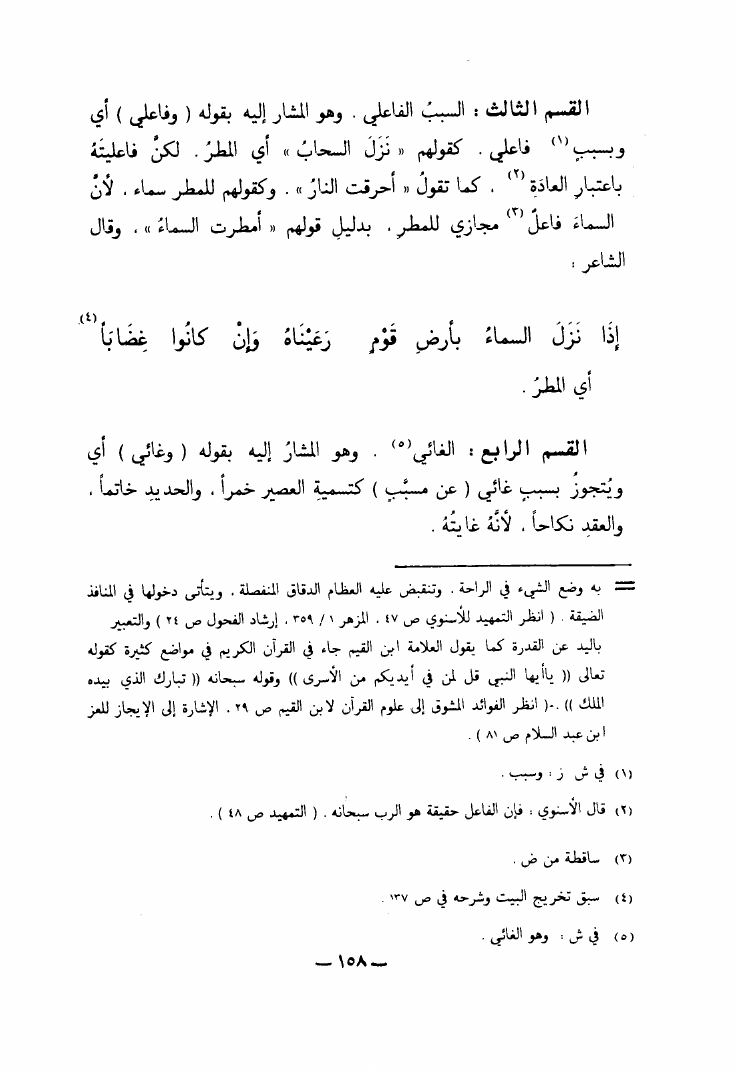 القسم الثالث : السببُ الفاعلي . وهو المشار إليه بقوله ( وفاعلي ) أي
وبسببٍ(١) فاعلي . كقولهم « نَزَلَ السحابُ » أي المطرُ . لكنَّ فاعليتَهُ
باعتبارِ العادَةِ(٢) ، كما تقولُ « أحرقت النارُ » . وكقولهم للمطر سماء ، لأنَّ
السماءَ فاعلٌ(٣) مجازي للمطرِ ، بدليلِ قولهم « أمطرت السماءُ » ، وقال
الشاعر :
إذَا نَزَلَ السماءُ بأرضِ قَوْمٍ رَعَيْنَاهُ وَإنْ كانُوا غِضَابَاً(٤)
أي المطرُ .
القسم الرابع : الغائي(٥) . وهو المشارُ إليه بقوله ( وغائي ) أي
ويُتجوزُ بسببٍ غائي ( عن مسبَّبٍ ) كتسميةِ العصيرِ خمراً ، والحديدِ خاتماً ،
والعقدِ نكاحاً ، لأنَّهُ غايتُهُ .
= به وضع الشيء في الراحة . وتنقبض عليه العظام الدقاق المنفصلة . ويتأتى دخولها في المنافذ
الضيقة . ( انظر التمهيد للأسنوي ص ٤٧ ، المزهر ١ / ٣٥٩ ، إرشاد الفحول ص ٢٤ ) والتعبير
باليد عن القدرة كما يقول العلامة ابن القيم جاء في القرآن الكريم في مواضع كثيرة كقوله
تعالى (( ياأيها النبي قل لمن في أيديكم من الأسرى )) وقوله سبحانه (( تبارك الذي بيده
الملك )) .-( انظر الفوائد المشوق إلى علوم القرآن لابن القيم ص ٢٩ ، الإشارة إلى الإيجاز للعز
ابن عبد السلام ص ٨١ ) .
(١) في ش ز : وسبب .
(٢) قال الأسنوي : فإن الفاعل حقيقة هو الرب سبحانه . ( التمهيد ص ٤٨ ) .
(٣) ساقطة من ض .
(٤) سبق تخريج البيت وشرحه في ص ١٣٧ .
(٥) في ش : وهو الغائي .
— ١٥٨ —